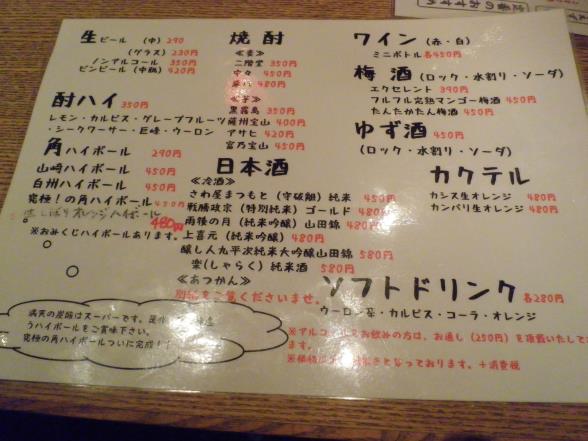 生ビール (中) 290
(グラス) 230円
ノンアルコール 350円
ビンビール (中瓶) 420円
酎ハイ 350円
レモン・カルピス・グレープフルーツ
・シークワーサー・巨峰・ウーロン
角ハイボール 290円
山崎ハイボール 450円
白州ハイボール 450円
究極!の角ハイボール 450円
生しぼりオレンジハイボール
480円
※おみくじハイボールあります。
満天の炭酸はスーパーです。
うハイボールをご賞味下さい。
究極の角ハイボールついに完成!!
焼酎
≪麦≫
二階堂 350円
中々 450円
480円
≪芋≫
黒霧島 350円
薩州宝山 400円
アサヒ 420円
富乃宝山 450円
日本酒
≪冷酒≫
さわ屋まつもと (守破離) 純米 450円
戦勝政宗 (特別純米) ゴールド 480円
雨後の月 (純米吟醸) 山田錦 480円
上喜元 (純米吟醸) 480円
醸し人九平次純米大吟醸山田錦 580円
楽(しゃらく) 純米酒 580円
≪あつかん≫
別紙をご覧くださいませ。
ワイン (赤・白)
ミニボトル各450円
梅酒 (ロック・水割り・ソーダ)
エクセレント 390円
フルフル完熟マンゴー梅酒 450円
たんたかたん梅酒 450円
ゆず酒 450円
(ロック・水割り・ソーダ)
カクテル
カシス生オレンジ 480円
カンパリ生オレンジ 480円
ソフトドリンク 各280円
ウーロン茶・カルピス・コーラ・オレンジ
※アルコールをお飲みの方は、お通し (250円) を頂戴いたして
ます。
きとなっております。+消費税